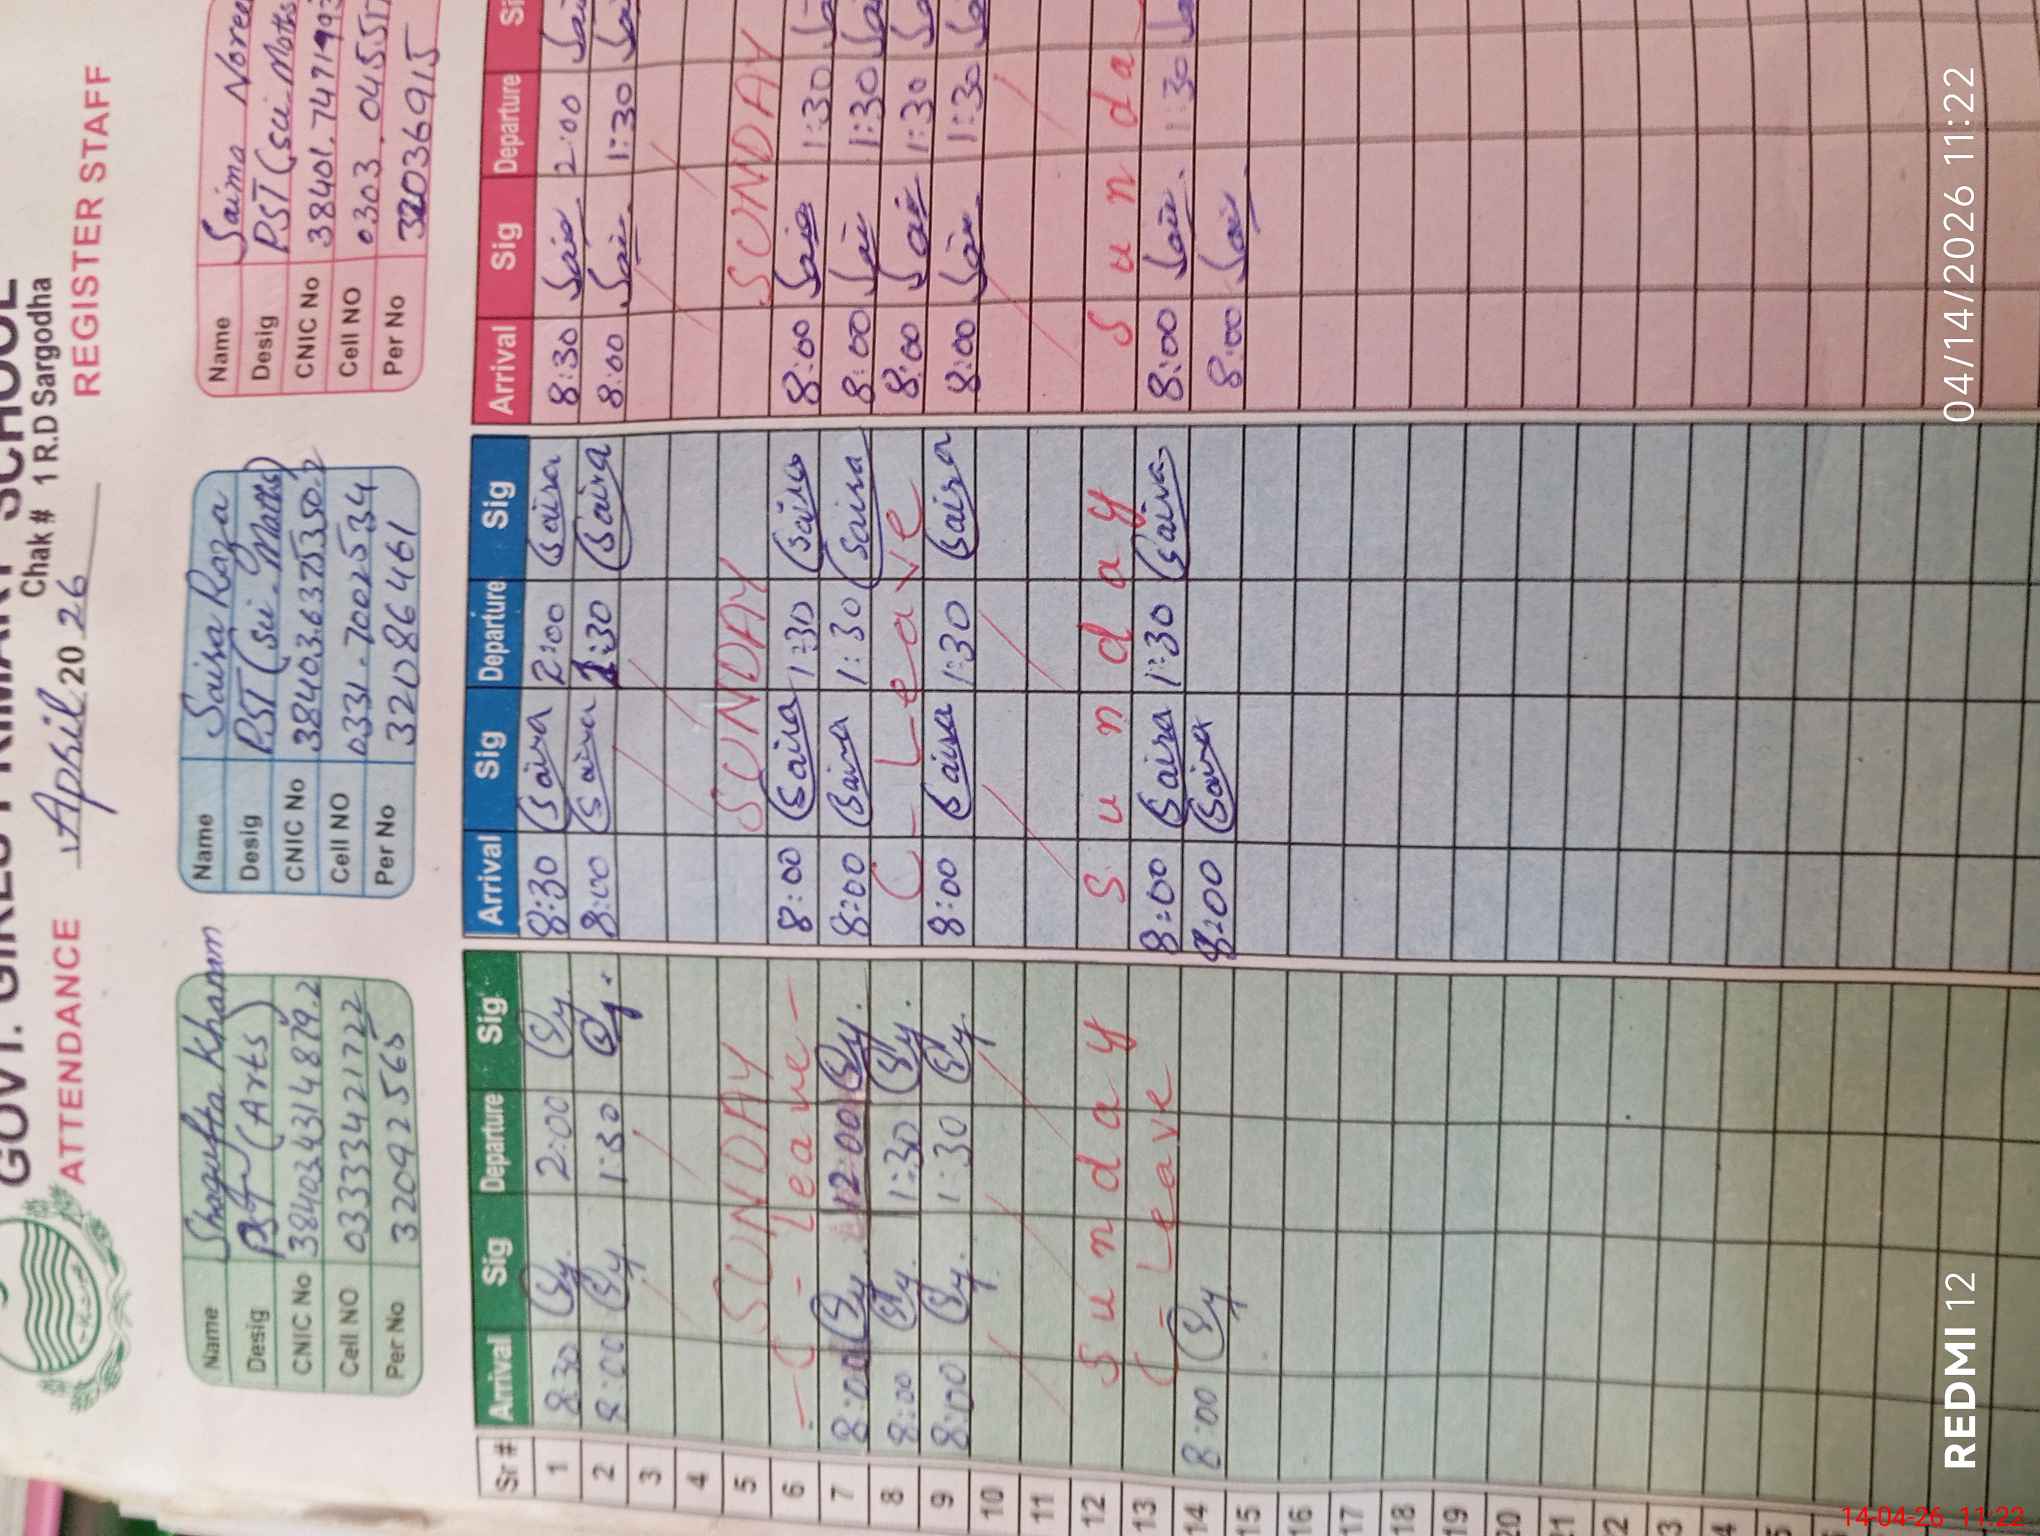 GOVT. GIRLS PRIMARY SCHOOL
Chak # 1 R.D Sargodha
ATTENDANCE April 2026 REGISTER STAFF
Name Shagufta Khanam
Desig (Arts)
CNIC No 38403.4314879.2
Cell NO 03333421722
Per No 32092565
Name Saira Raza
Desig PST (Sci-Maths)
CNIC No 38403.6375350.2
Cell NO 0331-7002534
Per No 32086461
Name Saima Noreen
Desig PST (Sci-Maths
CNIC No 38401.7471993
Cell NO 0303.04551
Per No 32036915
Sr # Arrival Sig Departure Sig Arrival Sig Departure Sig Arrival Sig Departure Si
1 8:30 Sy. 2:00 Sy. 8:30 Saira 2:00 Saira 8:30 Sai 2:00 Sai
2 8:00 Sy 1:30 Sy. 8:00 Saira 1:30 Saira 8:00 Sai. 1:30 Sai
3
4
5 SUNDAY SUNDAY SUNDAY
6 - C - Leave - 8:00 Saira 1:30 Saira 8:00 Sai 1:30 Sa
7 8:00 Sy. 12:00 Sy. 8:00 Saira 1:30 Saira 8:00 Sai 1:30 Sa
8 8:00 Sy. 1:30 Sy. C - Leave 8:00 Sai 1:30 Sa
9 8:00 Sy. 1:30 Sy. 8:00 Saira 1:30 Saira 8:00 Sai. 1:30 Sa
10
11
12 Sunday Sunday Sunda
13 C - Leave 8:00 Saira 1:30 Saira 8:00 Sai. 1:30 Sa
14 8:00 Sy 8:00 Saira 8:00 Sai.
15
16
17
18
19
20
21
22
3
4
5
REDMI 12 04/14/2026 11:22
14-04-26 11:22